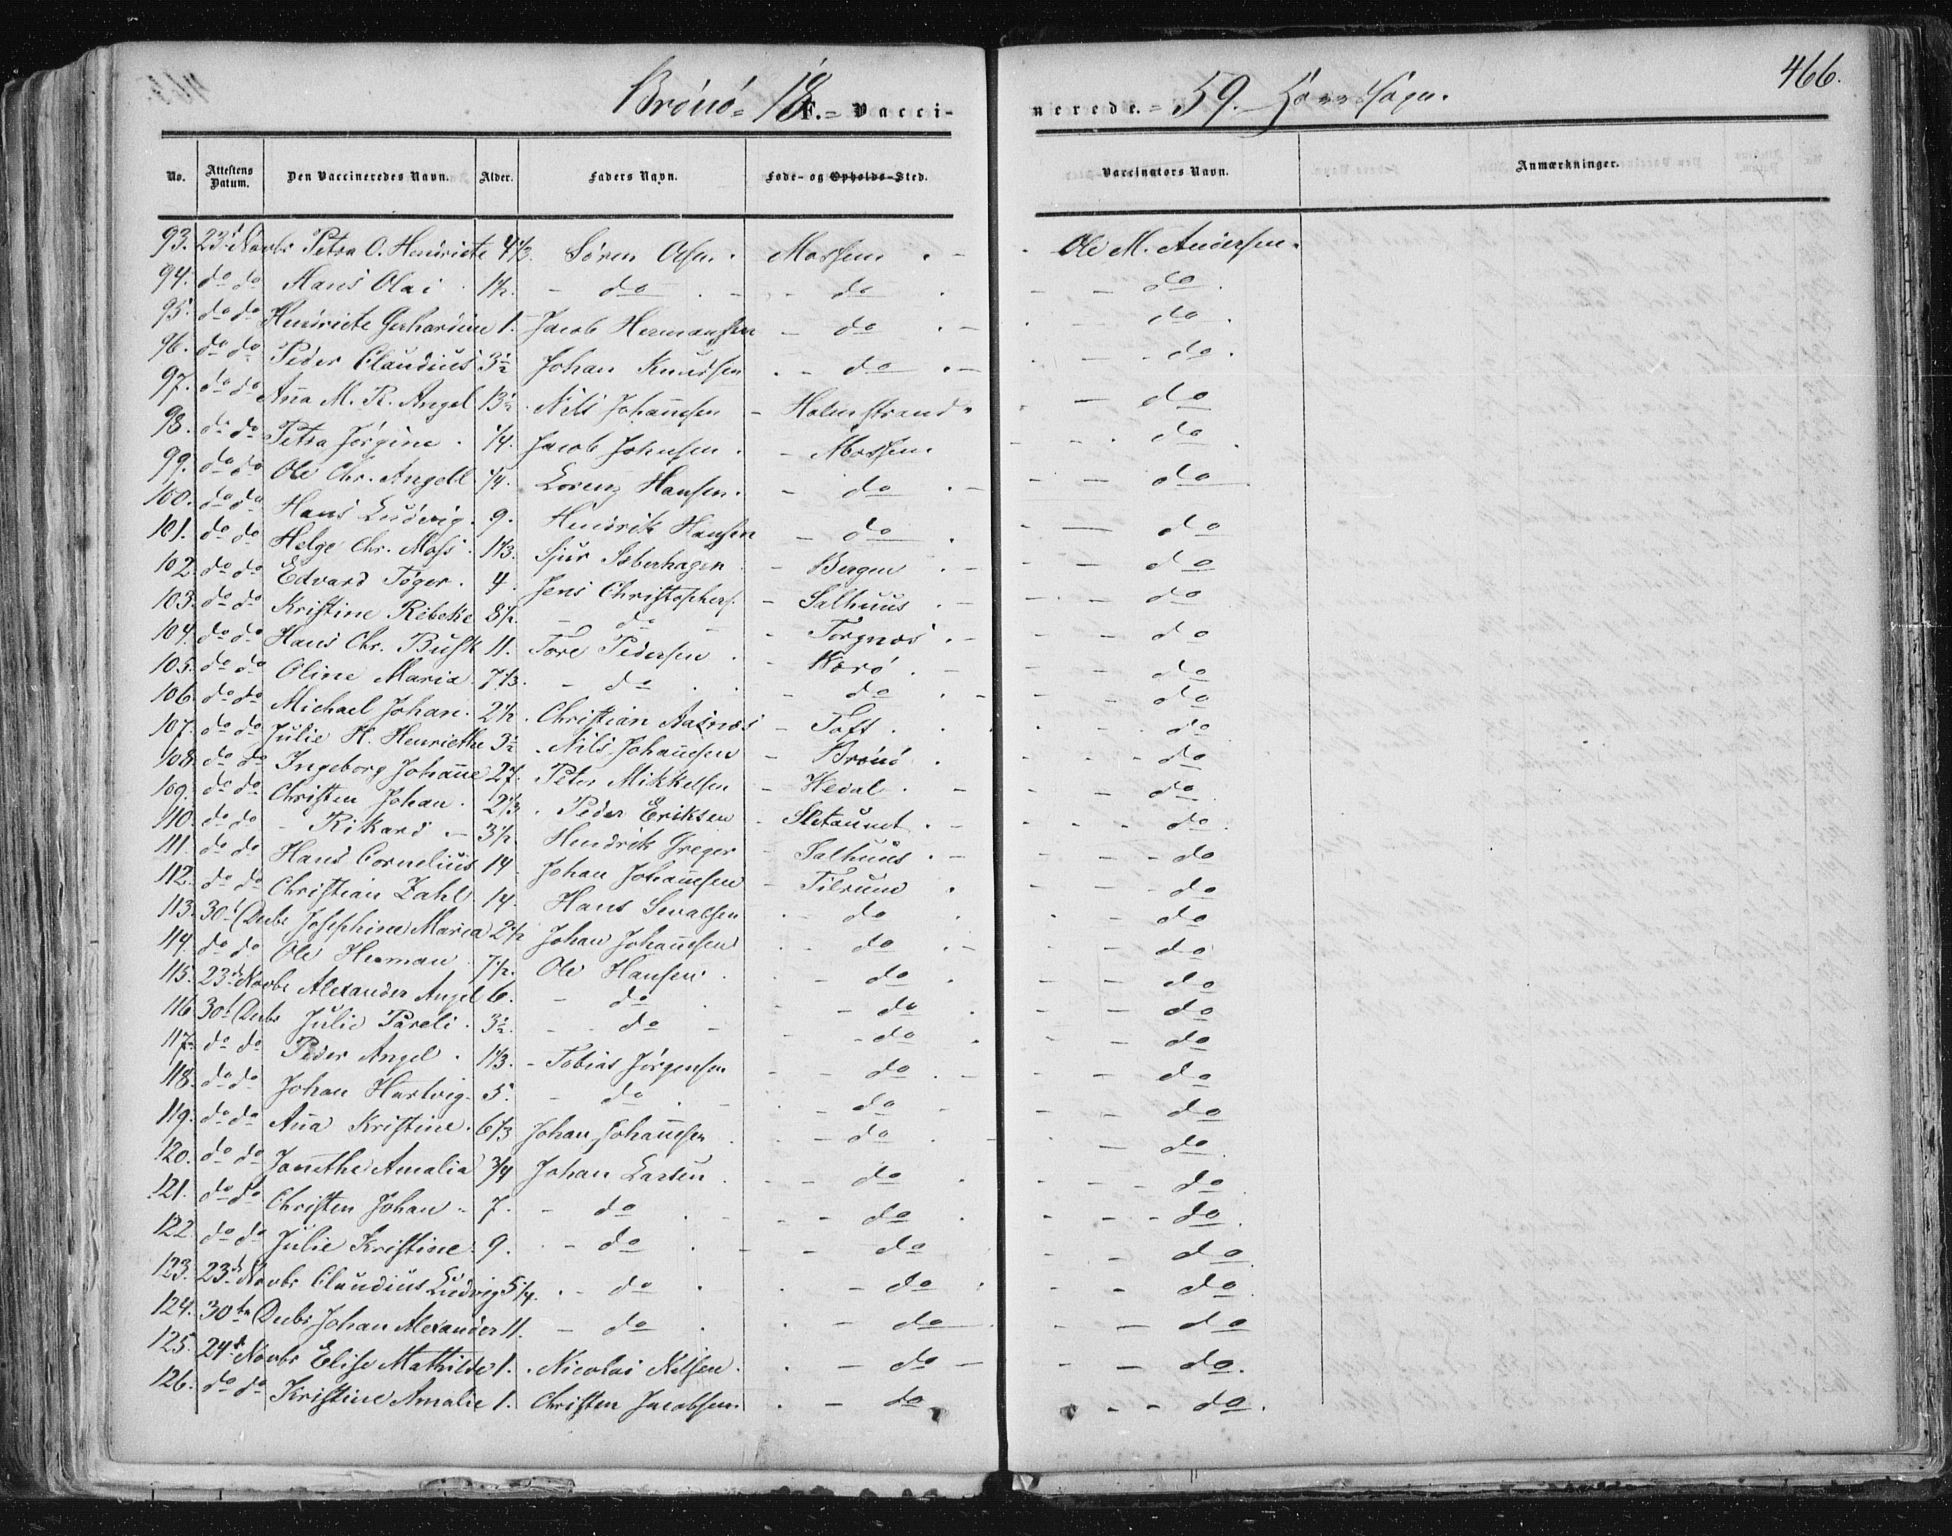 Brönö = 18 59. Sogn. 466.
F. = Vacci- nerede. =
No. Attestens Datum. Den Vaccineredes Navn. Alder. Faders Navn. Føde- og Opholds-Sted. Vaccinators Navn. Anmærkninger.
93. 23d Novbr Petra O. Henriete 4 1/3. Sören Olsen. Mossem - Ole M. Andersen.
94. do do Hans Olai 1 1/2. - do - do - do
95. do do Henriete Gerhardine 1. Jacob Hermansen - do - do
96. do do Peder Claudius 3 1/2 Johan Knudsen - do - do.
97. do do Aña M. R. Angel 13 1/2. Nils Johañesen - Holmstrand - do
98. do do Petra Jörgine. 1/4. Jacob Johnsen. - Mossem. - do
99. do do Ole Chr. Angell 1/4. Lorenz Hansen. - do - do
100. do do Hans Ludvig. 9. Hendrik Hansen - do - do
101. do do Helge Chr. Moss. 1 1/3. Sjur Isberhagen - Bergen - do
102. do do Edvard Töger. 4. Jens Christophers. - Salhuus. - do
103. do do Kristine Rebeke 8 1/2. - do - Torgnes. - do
104. do do Hans Chr. Busk 11. Tore Pedersen. - Værö - do
105. do do Oline Maria 7 1/3. - do - do - do
106. do do Michael Johan. 2 1/2. Christian Aasnes - Toft. - do
107. do do Julie H. Henriethe 3 1/2. Nils Johañesen - Brönö. - do
108. do do Ingeborg Johañe 27. Peter Mikkelsen - Heidal. - do
109. do do Christen Johan. 2 1/3. Peder Eriksen - Sletaunet. - do
110. do do - Rikard - 3 1/2. Hendrik Greger - Salhuus. - do
111. do do Hans Cornelius 14. Johan Johañesen - Tilrum. - do
112. do do Christian Zahl 14. Hans Sevalsen - do - do
113. 30te Decbr Josephine Maria 2 1/2 Johan Johañesen - do - do
114. do do Ole Herman 7 1/2. Ole Hansen. - do - do
115. 23d Novbr Alexander Angel 6. - do - do - do
116. 30te Decbr Julie Pareli. 3 1/2. - do - do - do
117. do do Peder Angel. 1 1/3. - Tobias Jörgensen - do - do
118. do do Johan Hartvig. 5. - do - do - do
119. do do Aña Kristine. 6 1/3 Johan Johañesen - do - do
120. do do Janethe Amalia 3/4 Johan Larsen. - do - do
121. do do Christen Johan. 7. - do - do - do.
122. do do Julie Kristine. 9. - do - do - do
123. 23d Novbr Claudius Ludvig 5 1/4. - do - do - do
124. 30te Decbr Johan Alexander 11. - do - do - do
125. 24d Novbr Elise Mathilde 1. Nicolai Nilsen. - do - do.
126. do do Kristine Amalie 1. Christen Jacobsen. - do - do.